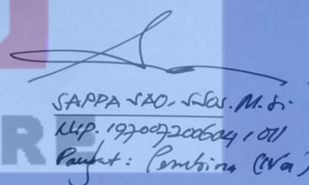 SAPPA SAO, S.Sos. M.Si
Nip. 197007200604 1 011
Pangkat : Pembina (IV/a)
RE